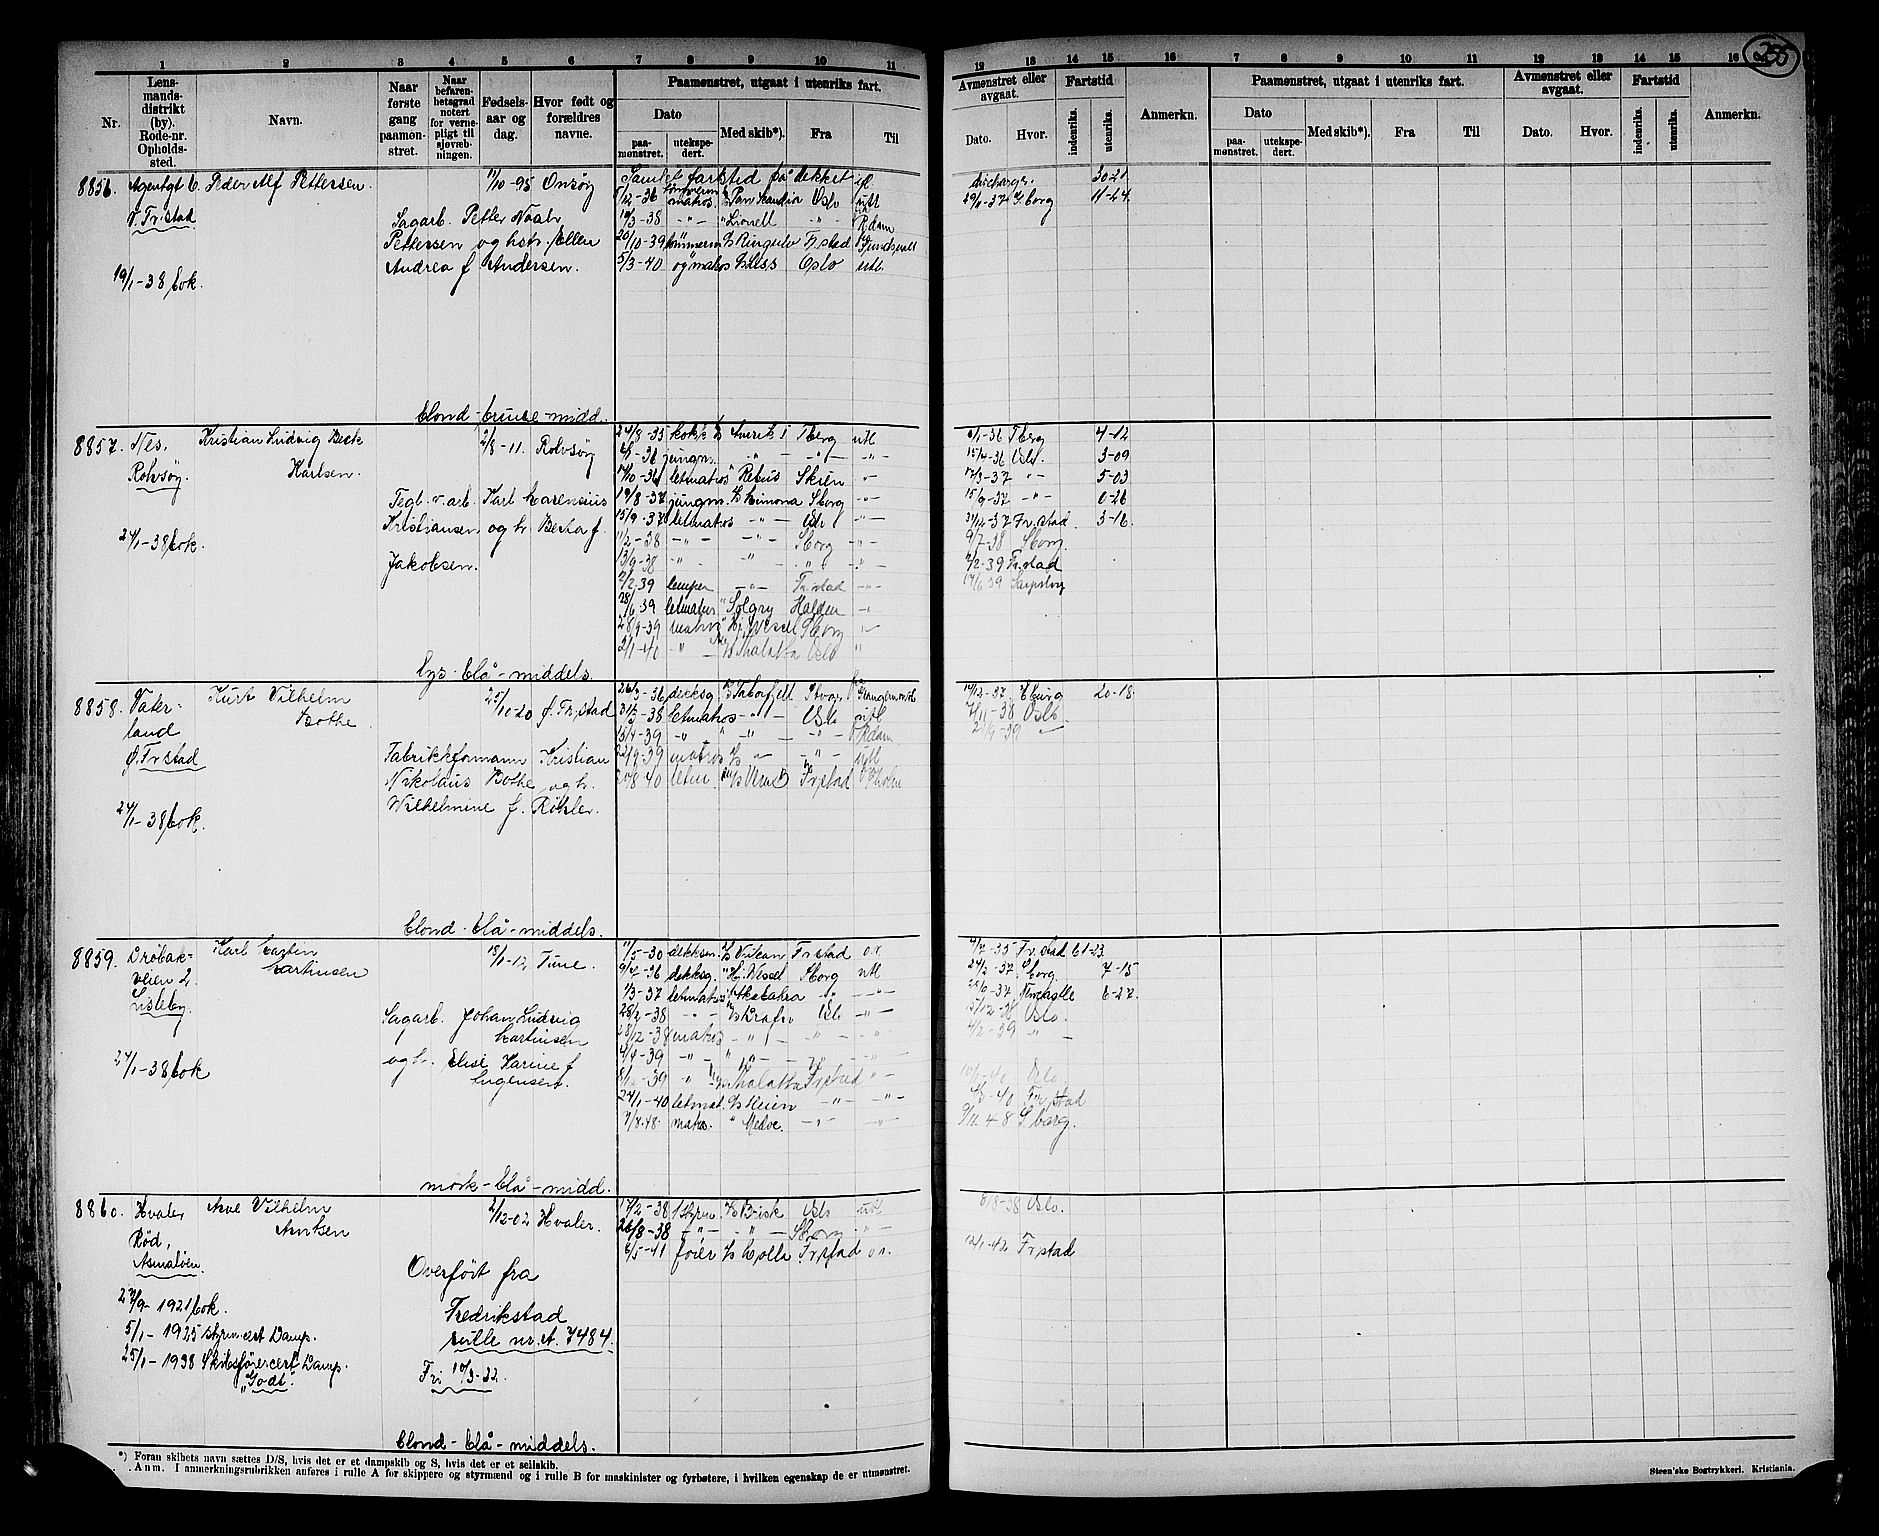 255
1 2 3 4 5 6 7 8 9 10 11
Nr.
Lensmandsdistrikt (by). Rode-nr. Opholdssted.
Navn.
Naar første gang paamønstret.
Naar befarenhetsgrad notert for vernepligt til sjøvæbningen.
Fødselsaar og dag.
Hvor født og forældres navne.
Paamønstret, utgaat i utenriks fart.
Dato
paamønstret.
utekspedert.
Med skib*).
Fra
Til
12 13 14 15 16 7 8 9 10 11 12 13 14 15 16
Avmønstret eller avgaat.
Dato.
Hvor.
Fartstid
indenriks.
utenriks.
Anmerkn.
Paamønstret, utgaat i utenriks fart.
Dato
paamønstret.
utekspedert.
Med skib*).
Fra
Til
Avmønstret eller avgaat.
Dato.
Hvor.
Fartstid
indenriks.
utenriks.
Anmerkn.
8856. Agentgt 6. Peder Alf Pettersen. 11/10-95 Onsøy
V. Fr.stad
Sagarb. Petter Noabr
Pettersen og hstr. Ellen
Andrea f. Andersen.
19/1-38 bok.
Samlet fartstid på dekket
5/12-36 matros Pan Scandia Oslo utl
19/3-38 -"- " Lionell -"- R.dam
20/10-39 tømmerm Ringulv Fr.stad Sundsvall
5/3-40 og matros Oslo utl.
30-21
29/11-37 S.borg 11-24
blond - brune - midd.
8857. Nes, Kristian Ludvig Beck 2/8-11. Rolvsøy
Rolvsøy. Karlsen.
Tegl.v.arb. Karl Marensius
Kristiansen og h. Berta f.
Jakobsen.
24/1-38 bok.
24/8-35 kokk Sverik I T.berg utl
6/1-36 jungm. -"- -"- -"-
17/10-36 letmatros " Rebus Skien -"-
19/8-37 jungm. Rimona S.borg -"-
15/9-37 letmatros -"- Oslo -"-
11/2-38 -"- -"- S.borg -"-
13/9-38 -"- -"- -"- -"-
2/2-39 lemper -"- Fr.stad -"-
28/6-39 letmatros " Solgry Halden -"-
28/9-39 matros " Hj. Wessel S.borg -"-
2/1-40 -"- Thalatta Oslo "
6/1-36 T.berg 4-12
15/4-36 Oslo. 3-09
17/3-37 -"- 5-03
15/9-37 -"- 0-26
31/12-37 Fr.stad. 3-16
9/7-38 S.borg.
2/2-39 Fr.stad
17/6-39 Sarpsborg
lys - blå - middels.
8858. Vater- Kurt Vilhelm 25/10-20 Ø. Fr.stad
land Bothe.
Ø. Fr.stad
Fabrikkformann Kristian
Nikolaus Bothe og h.
Wilhelmine f. Rötsler.
24/1-38 bok.
26/3-36 dekksg. Taborfjell
31/3-38 letmatros -"- Oslo utl
13/4-39 -"- -"- -"- R.dam
22/9-39 matros -"- -"- utl
20/8-40 letm Fr.stad
14/12-37 20-18.
7/11-38 Oslo.
21/9-39 -"-
blond - blå - middels.
8859. Drøbak- Karl Martin 18/1-12 Tune.
veien 2. Martinsen
Lisleby.
Sagarb. Johan Ludvig
Martinsen
og h. Elise Karine f.
Ingensen.
24/1-38 bok
11/5-30 dekksm. Vulcan Fr.stad o.r.
9/4-36 dekksg. " Hj. Wessel S.borg utl
1/3-37 letmatros Skabakra -"- -"-
28/2-38 -"- Oslo -"-
28/12-38 matros -"- -"- -"-
4/4-39 -"- -"- -"- -"-
8/12-39 " Thalatta Fr.stad -"-
24/1-40 letmat. -"- -"-
7/8.48. matr. " Medve. -"- -"-
4/7-35 Fr.stad 61-23
24/2-37. S.borg 7-15
22/9-37 Newcastle 6-27.
15/12-38 Oslo.
4/2-39 "
10/1-40 Oslo
4/3-40 Fr.stad
9/11.48 S.barg.
mørk - blå - midd.
8860. Hvaler Arne Vilhelm 2/12-02 Hvaler.
Rød, Arntsen
Asmaløen.
29/9-1921 bok.
5/1-1925 styrm.cert Damp.
25/1-1938 Skibsførercert Damp.
"Godt".
Overført fra
Fredrikstad
rulle nr. A. 7484.
Fri 10/3-22.
17/2-38 1 styrm Brisk Oslo utl
26/8-38 -"- -"- S.borg -"-
6/5-41 fører Holla Fr.stad o.r.
8/8-38 Oslo.
12/1-42 Fr.stad
blond - blå - middels.
*) Foran skibets navn sættes D/S, hvis det er et dampskib og S, hvis det er et seilskib.
Anm. I anmerkningsrubrikken anføres i rulle A for skippere og styrmænd og i rulle B for maskinister og fyrbøtere, i hvilken egenskap de er utmønstret.
Steen'ske Bogtrykkeri. Kristiania.